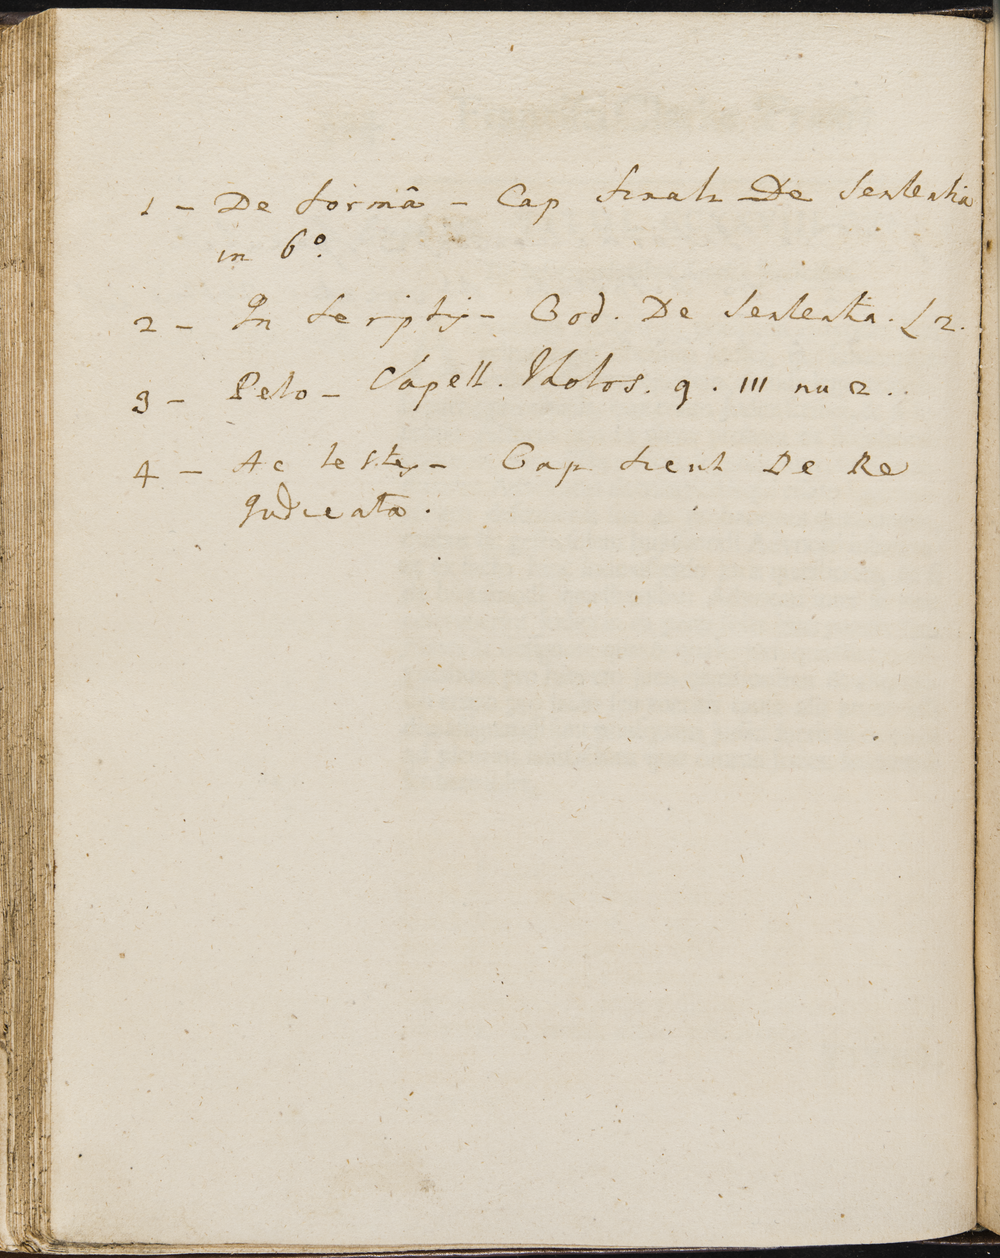 1 - De formâ - Cap finali De Sententia
in 6º.
2 - In scriptis - Cod. De Sententia. L 2.
3 - Peto - Capell. Tholos. q. 111 nu 2..
4 - Ac testes - Cap sicut De Re
Judicata.